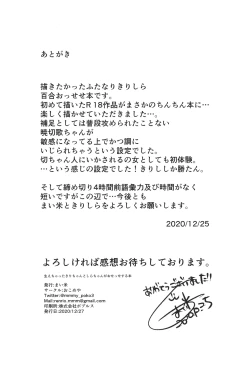 あとがき
描きたかったふたなりきりしら
百合おっせせ本です。
初めて描いたR18作品がまさかのちんちん本に…
楽しく描かせていただきました…。
補足としては普段攻められたことない
暁切歌ちゃんが
敏感になってる上でかつ調に
いじられちゃうという設定でした。
切ちゃん人にいかされるの女としても初体験。
…という感じの設定でした!きりししか勝たん。
そして締め切り4時間前語彙力及び時間がなく
短いですがこの辺で…今後とも
まい米ときりしらをよろしくお願いします。
2020/12/25
よろしければ感想お待ちしております。
発行:まい米
サークル:おこめや
発行日:2020/12/27